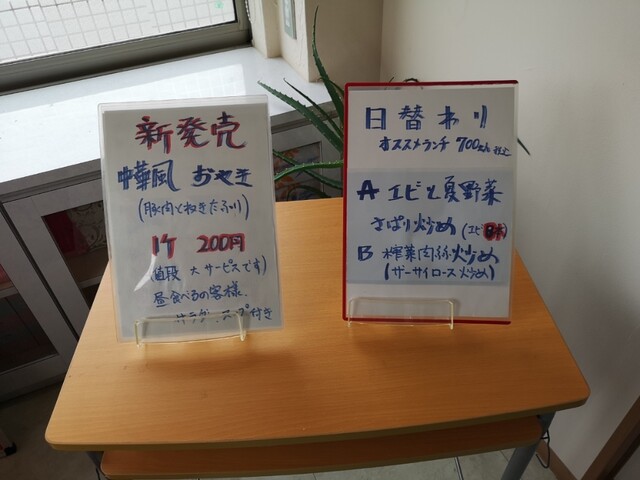 新発売
中華風 おやき
(豚肉とねぎたっぷり)
1ケ 200円
(値段 大サービスです)
昼食べるの客様、
サラダ、スープ付き
日替わり
オススメランチ 700えん
A エビと夏野菜
さぱり炒め (エビ8本)
B 搾菜肉絲炒め
(ザーサイロース炒め)